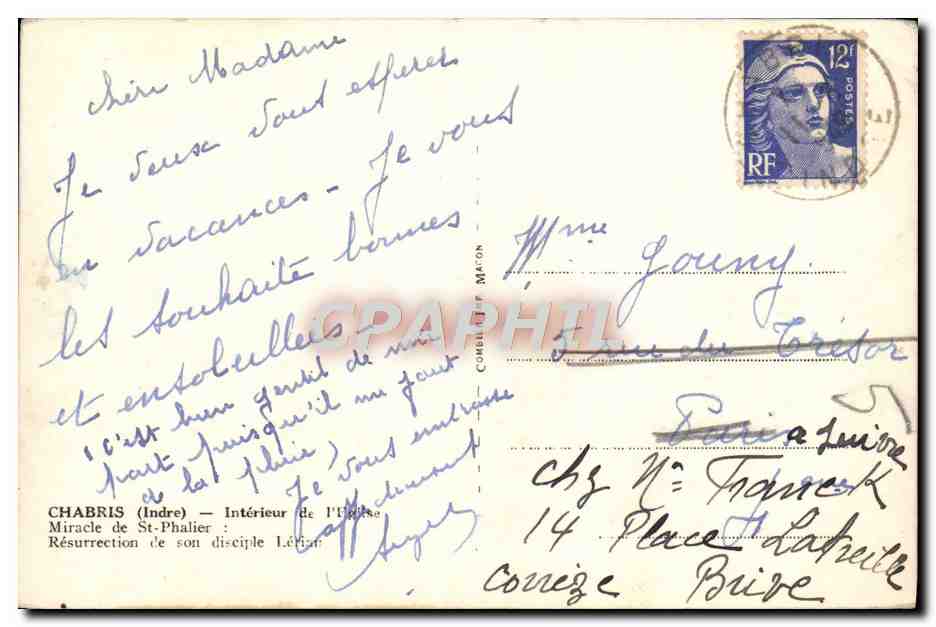 chère Madame
Je veux vous espérer
en vacances - Je vous
les souhaite bonnes
et ensoleillées -
(c'est bien gentil de ma
part puisqu'il me faut
de la pluie)
Je vous embrasse
affectueusement
CHABRIS (Indre) — Intérieur de l'Eglise
Miracle de St-Phalier :
Résurrection de son disciple Lérian
COMBIER IMP. MACON
12f
POSTES
RF
CPARHIL
Mme Gouny
5 rue du Trésor
Paris a suivre
chez Mr Franck
14 Place Latreille
Corrèze Brive